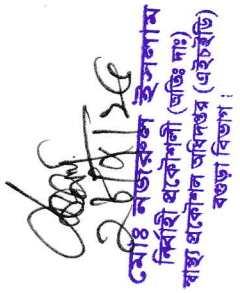 ২৪/৭/২৫
মোঃ নজরুল ইসলাম
নির্বাহী প্রকৌশলী (অতিঃ দাঃ)
স্বাস্থ্য প্রকৌশল অধিদপ্তর (এইচইডি)
বগুড়া বিভাগ।